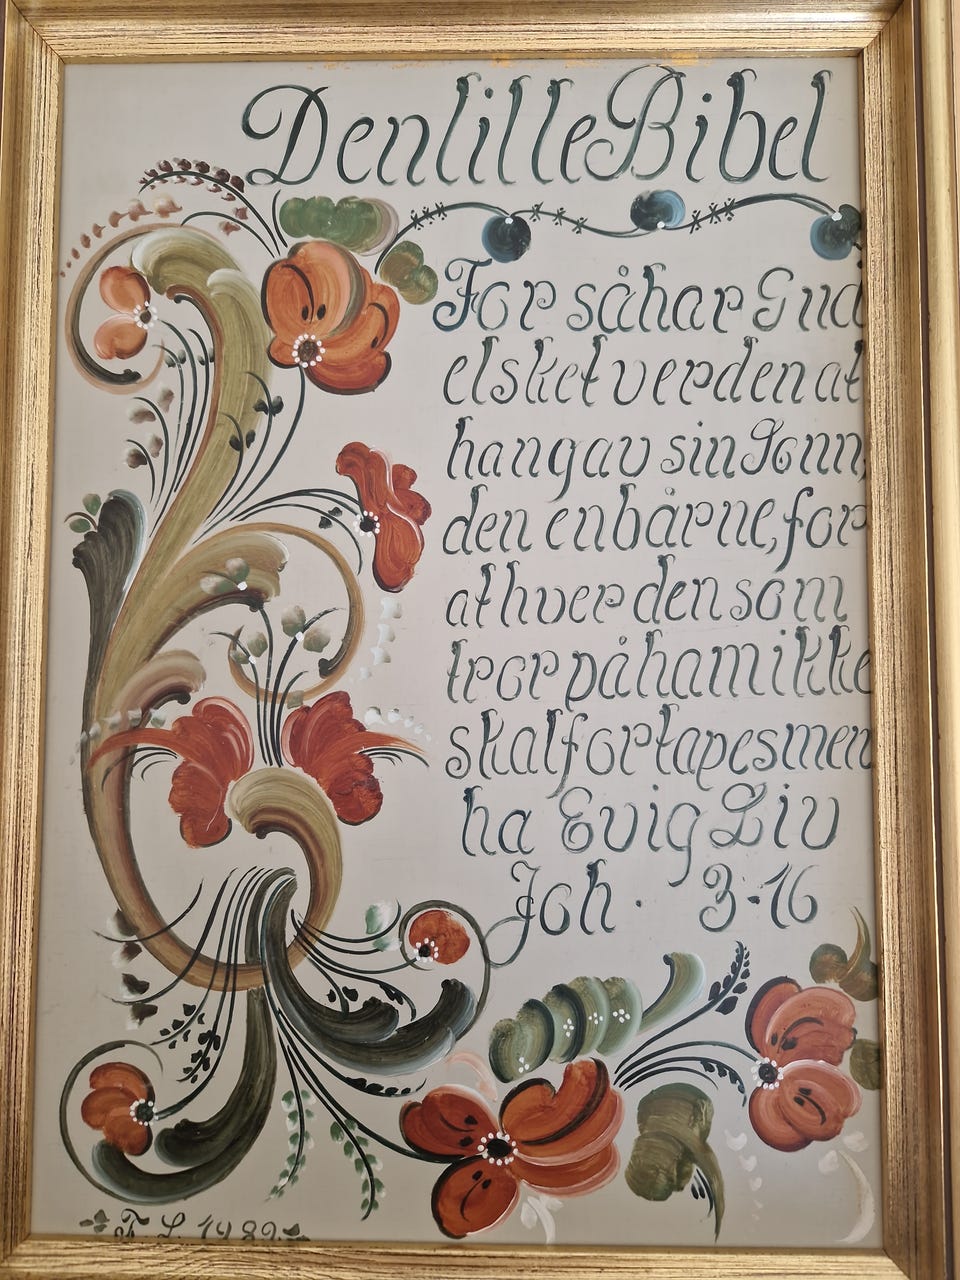 Den lille Bibel
For så har Gud
elsket verden at
han gav sin Sønn,
den enbårne, for
at hver den som
tror på ham ikke
skal fortapes men
ha Evig Liv
Joh. 3-16
F. L. 1989